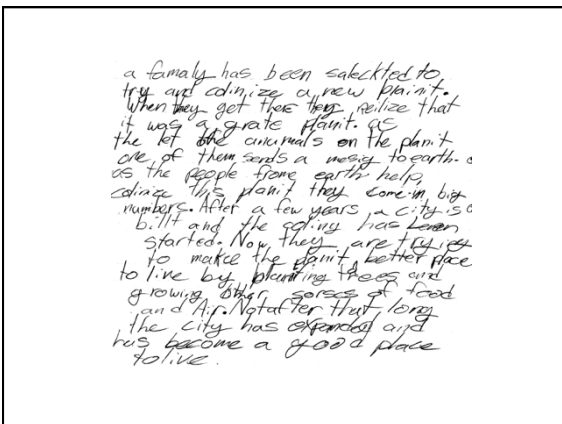 a famaly has been saleckted to
try and colinize a new plainit.
When they get there they reilize that
it was a grate planit. as
the let the anumals on the planit
one of them sends a mesig to earth.
as the people frome earth help
colinize this planit they come in big
numbers. After a few years a city is
billt and the coliny has
started. Now they are trying
to makee the planit better place
to live by planting trees and
growing other sorses of food
and Air. Not after that long
the city has expanded and
has become a good place
to live.